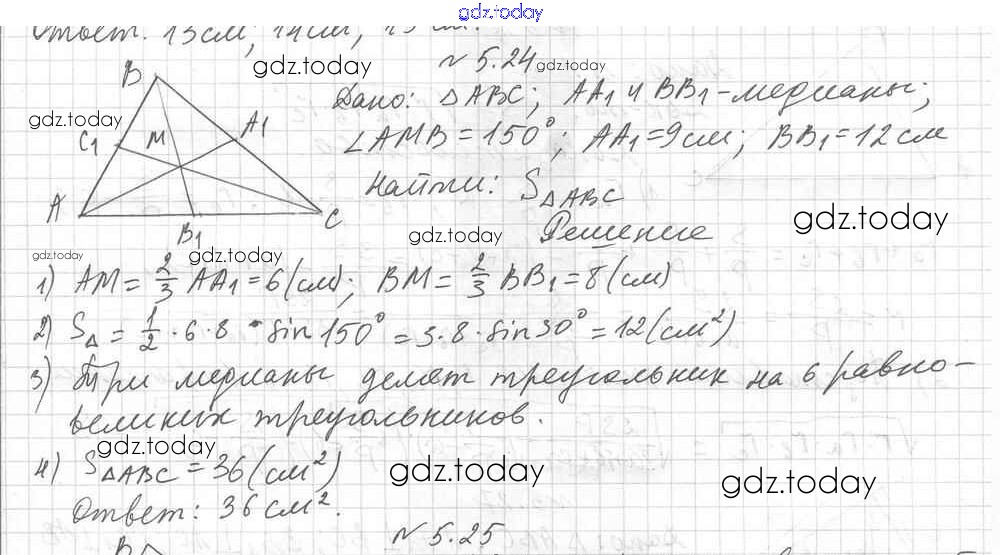 gdz.today
Ответ. 13см, 14см,
№ 5.24
gdz.today
gdz.today
B
Дано: △ABC; AA₁ и BB₁-медианы;
gdz.today
C₁ M A₁
∠AMB = 150°; AA₁=9см; BB₁=12см
Найти: S△ABC
A C
B₁
gdz.today
gdz.today
Решение
gdz.today
gdz.today
1) AM = 2/3 AA₁ = 6(см); BM = 2/3 BB₁ = 8(см)
2) S△ = 1/2 · 6 · 8 · sin 150° = 3·8·sin 30° = 12(см²)
3) Три медианы делят треугольник на 6 равно-
великих треугольников.
gdz.today
4) S△ABC = 36(см²)
gdz.today
gdz.today
Ответ: 36 см².
№ 5.25
B